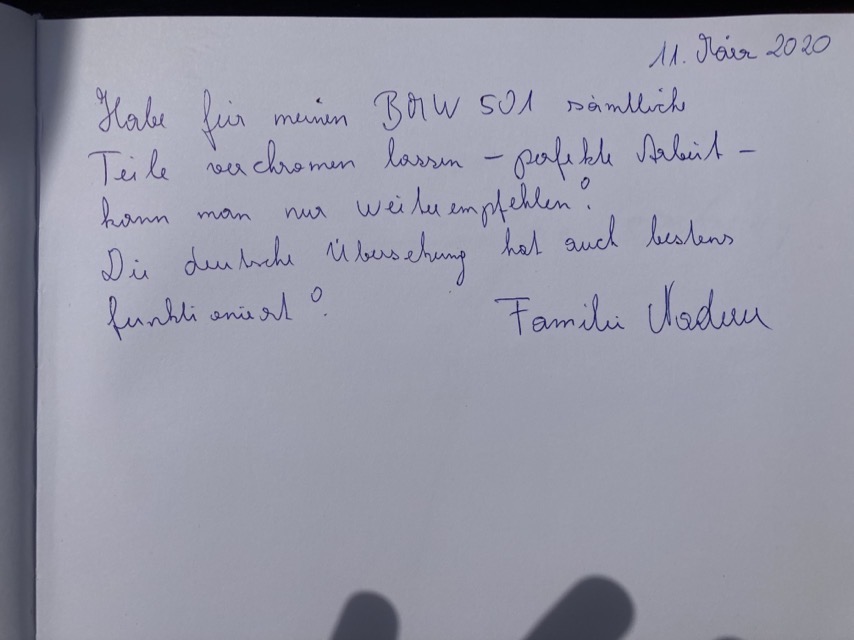 11. März 2020
Habe für meinen BMW 501 sämtliche
Teile verchromen lassen – perfekte Arbeit –
kann man nur weiterempfehlen!
Die deutsche Übersetzung hat auch bestens
funktioniert!
Familie